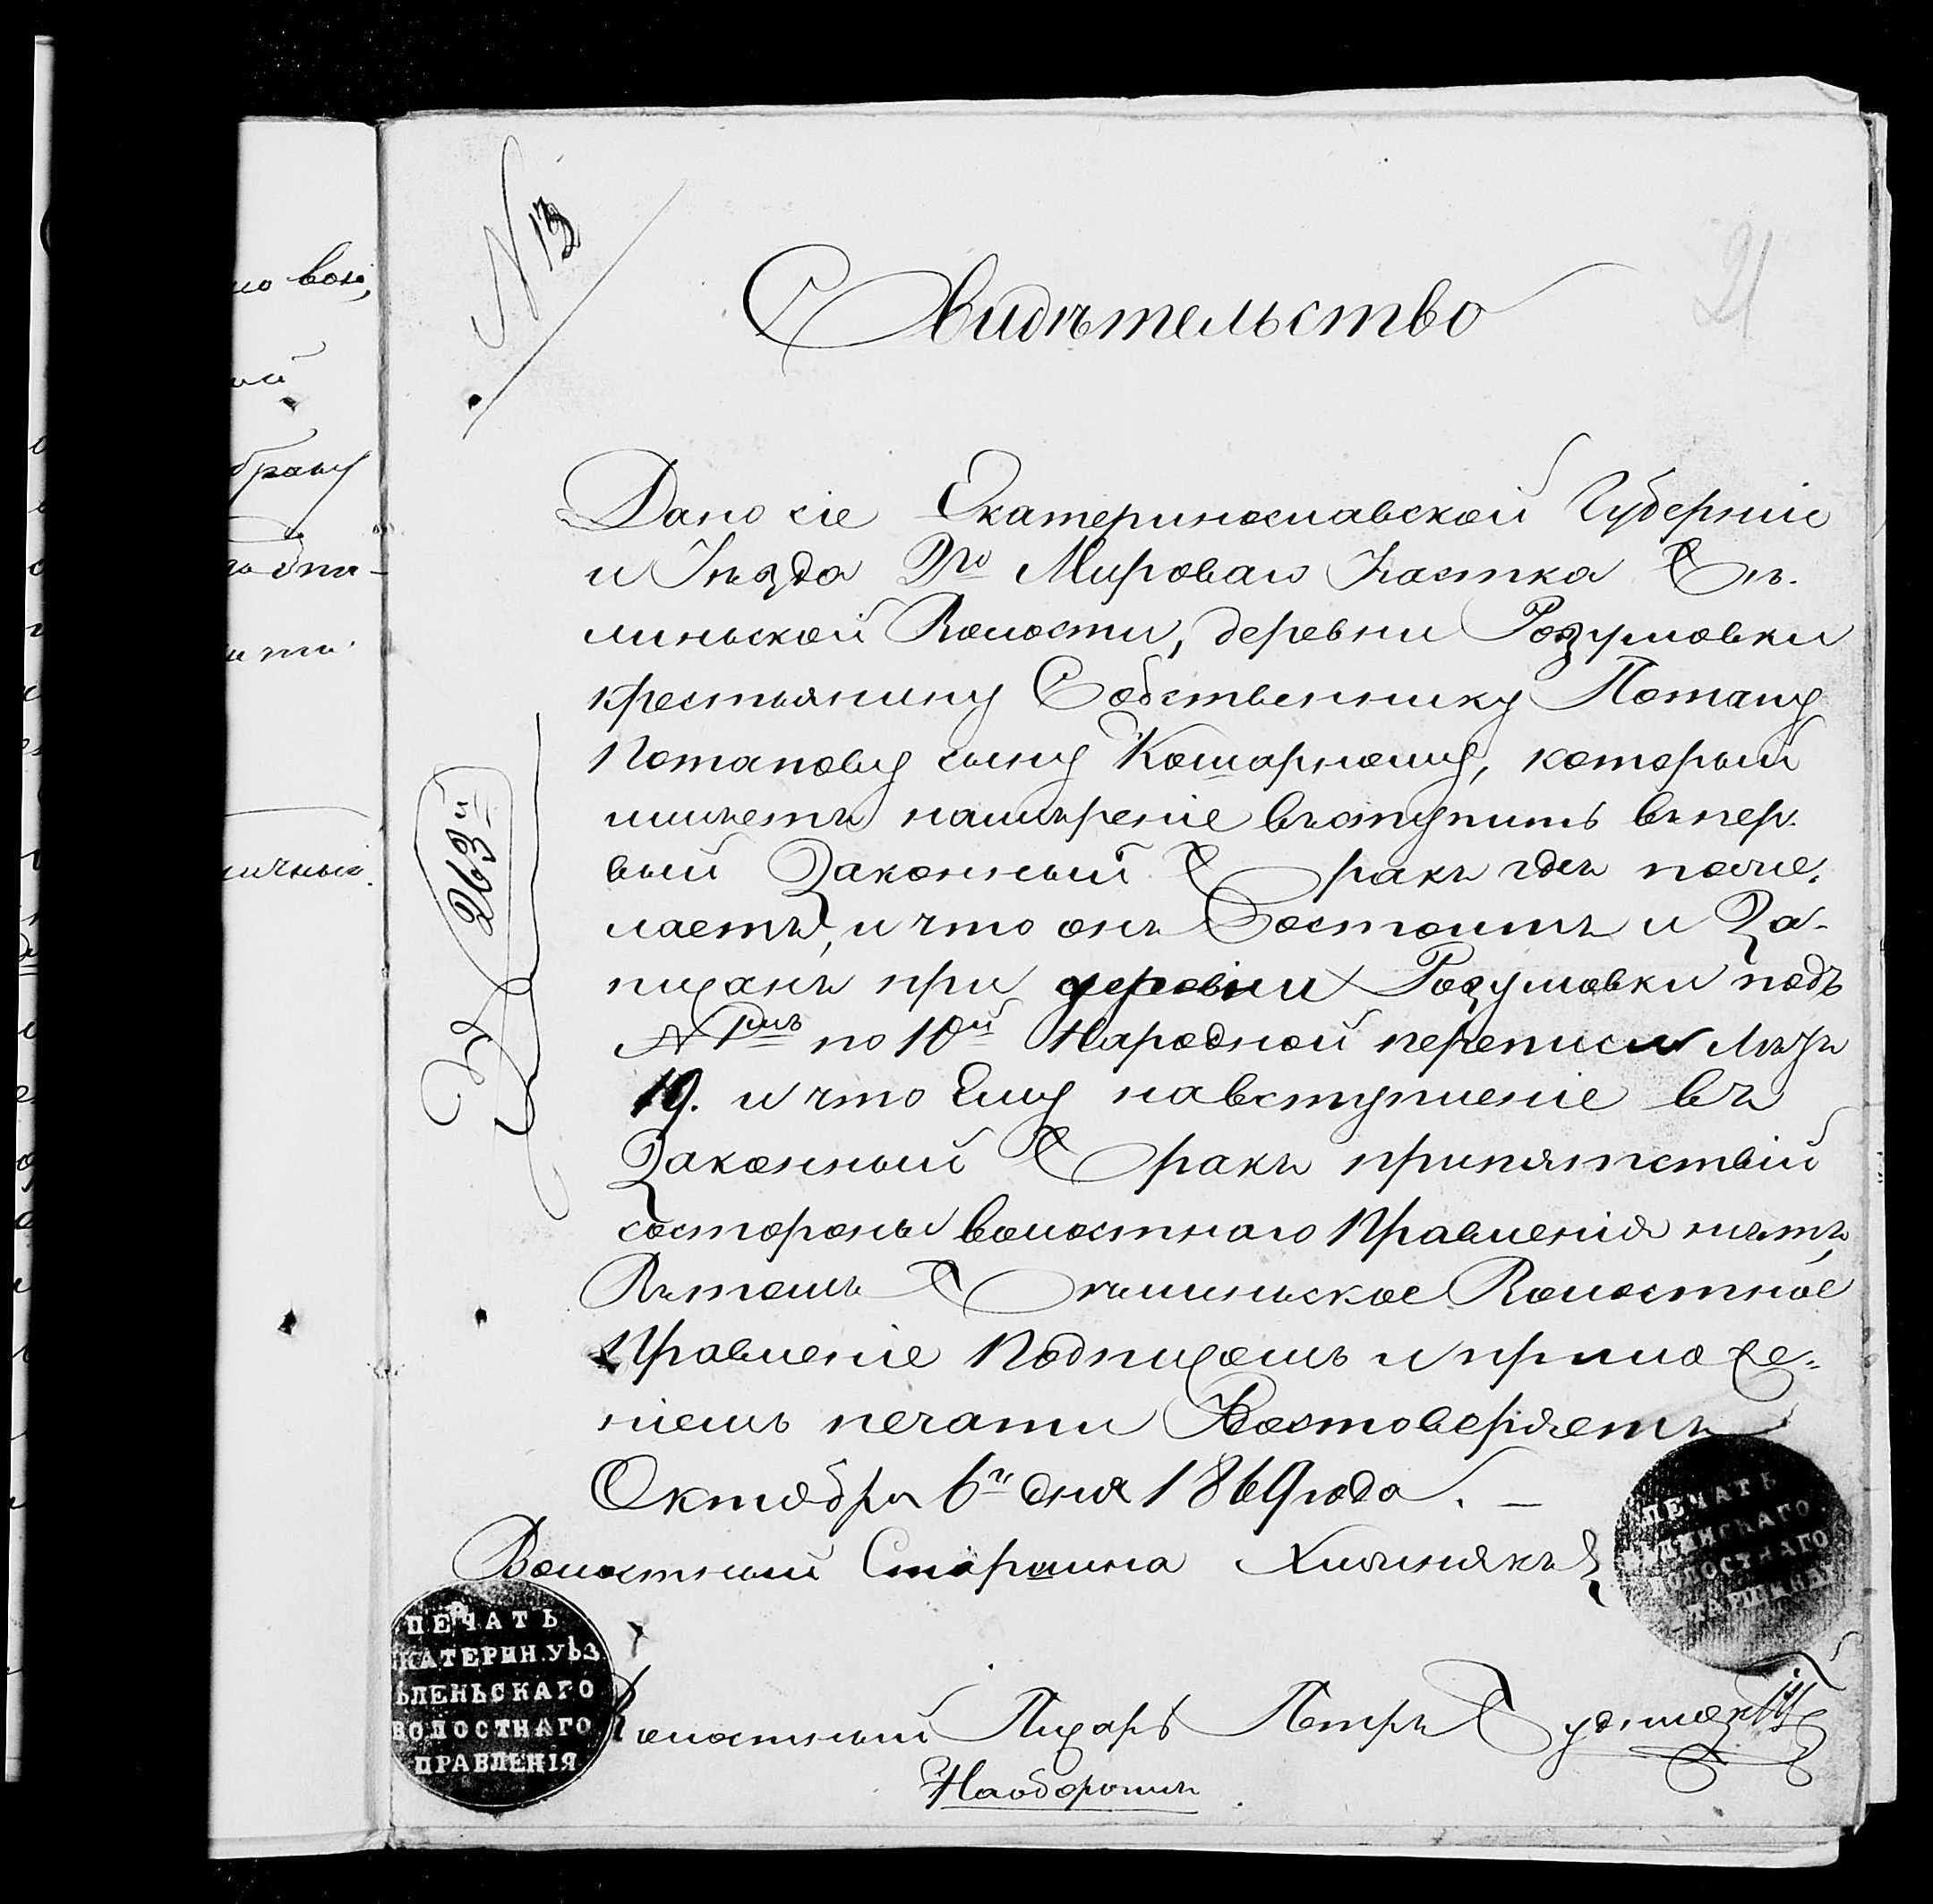 N 13
21
Свидѣтельство
Дано сіе Екатеринославской Губерніи
и Уѣзда 2го Мироваго Участка Бѣ-
линьской Волости, деревни Розумовки
крестьянину Собственнику Потапу
Потапову сыну Кошарному, который
имѣетъ намѣреніе въступить въ пер-
вый Законный Бракъ гдѣ поже-
лаетъ, и что онъ Состоитъ и За-
писанъ при деревни Розумовки подъ
N 1мъ по 10й Народной переписи лѣтъ
19. и что Ему навступленіе въ
Законный Бракъ припятствій
состороны волостнаго Правленія нѣтъ,
Въ томъ Бѣлиньское Волостное
Правленіе Подписомъ и приложе-
ніемъ печати Удостовѣряетъ
Октября 6го дня 1869 года. —
Волостный Старшина
Волостный Писарь Петръ
Наоборотъ
263й
ПЕЧАТЬ
КАТЕРИН. УѢЗ.
ѢЛЕНЬСКАГО
ВОЛОСТНАГО
ПРАВЛЕНІЯ
ПЕЧАТЬ
ВОЛОСТНАГО
СТАРШИНЫ